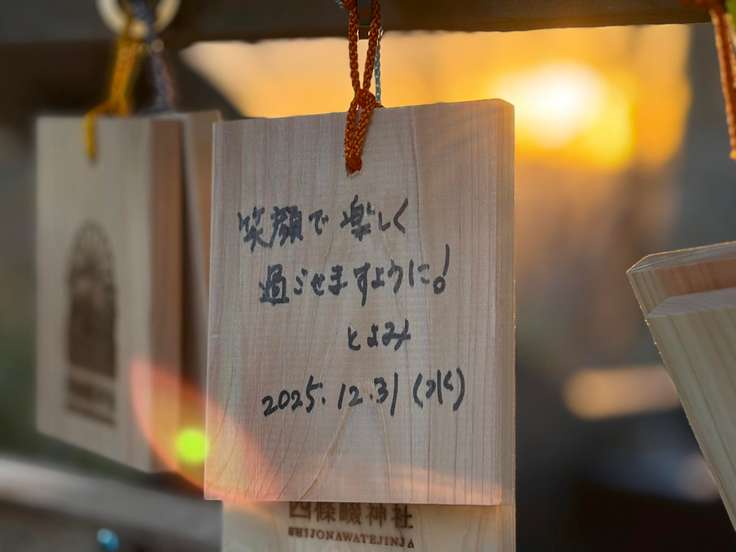 笑顔で楽しく
過ごせますように!
とよみ
2025.12.31(水)
四條畷神社
SHIJONAWATEJINJA